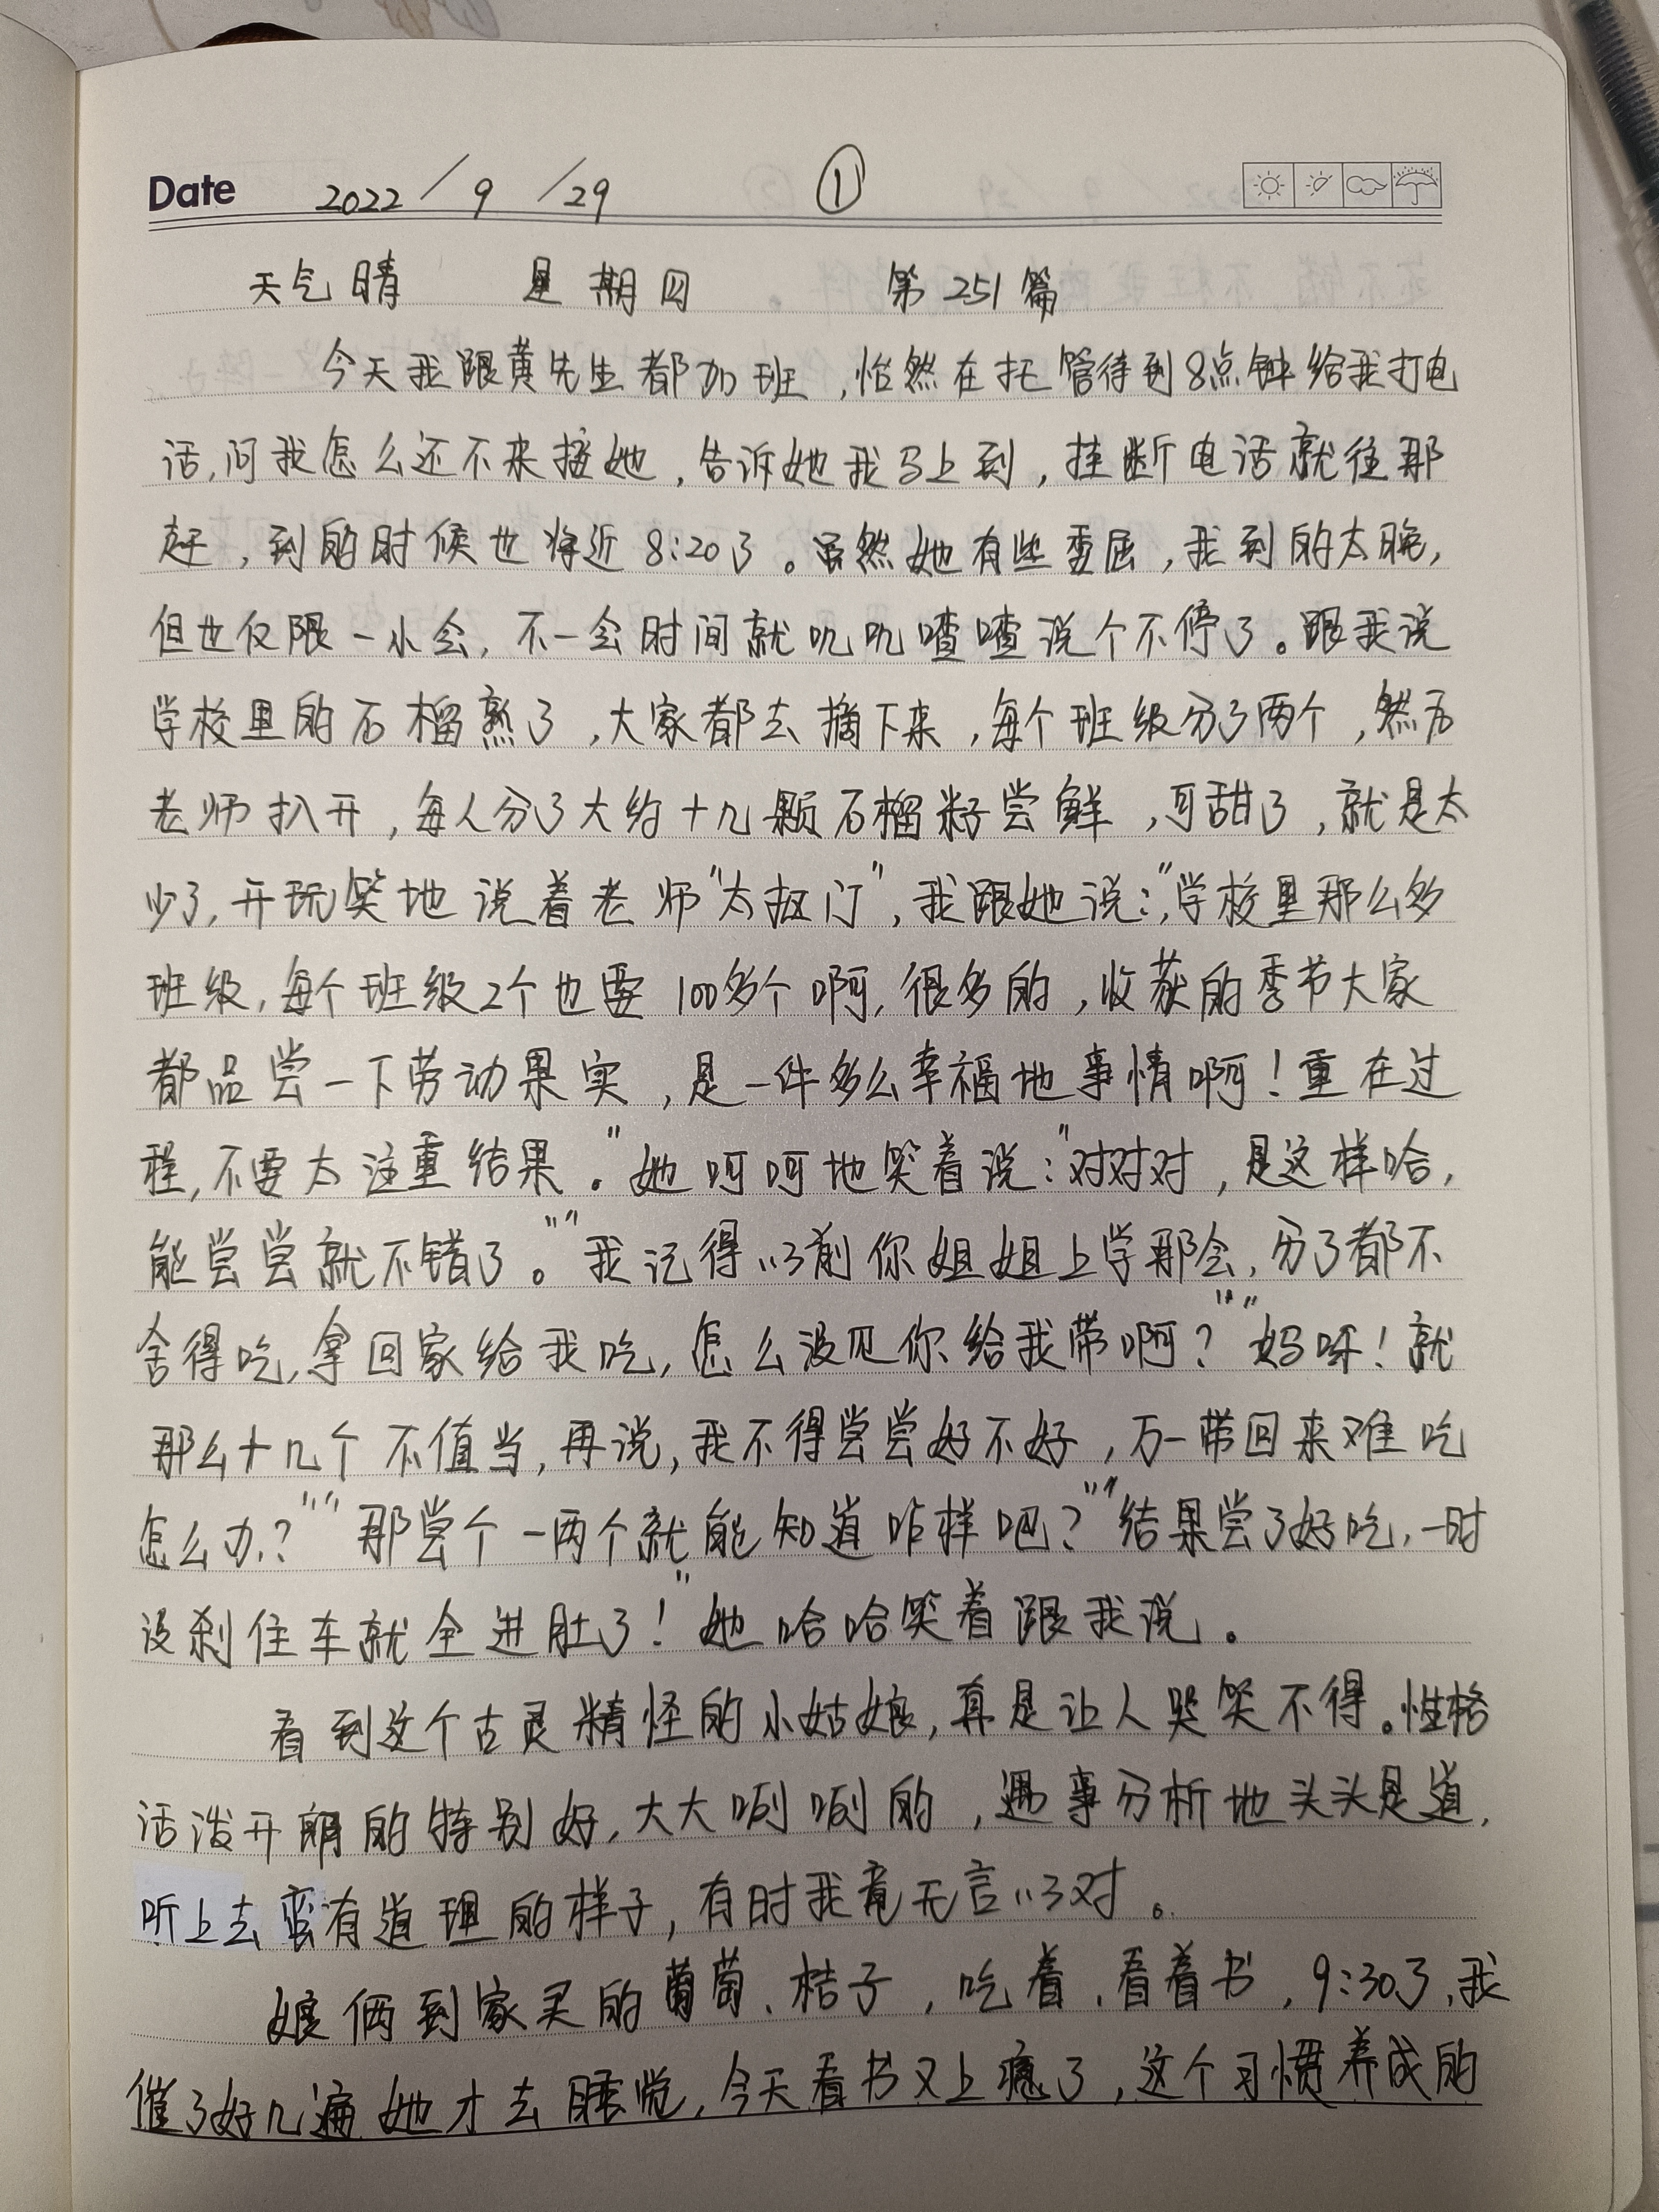 Date 2022/9/29 ①
天气晴 星期四 第251篇
今天我跟黄先生都加班,怡然在托管待到8点钟给我打电
话,问我怎么还不来接她,告诉她我马上到,挂断电话就往那
赶,到的时候也将近8:20了。虽然她有些委屈,我到的太晚,
但也仅限一小会,不一会时间就叽叽喳喳说个不停了。跟我说
学校里的石榴熟了,大家都去摘下来,每个班级分了两个,然后
老师扒开,每人分了大约十几颗石榴籽尝鲜,可甜了,就是太
少了,开玩笑地说着老师"太抠门",我跟她说:"学校里那么多
班级,每个班级2个也要100多个啊,很多的,收获的季节大家
都品尝一下劳动果实,是一件多么幸福地事情啊!重在过
程,不要太注重结果。"她呵呵地笑着说:"对对对,是这样哈,
能尝尝就不错了。""我记得以前你姐姐上学那会,分了都不
舍得吃,拿回家给我吃,怎么没见你给我带啊?""妈呀!就
那么十几个不值当,再说,我不得尝尝好不好,万一带回来难吃
怎么办?""那尝个一两个就能知道咋样吧?""结果尝了好吃,一时
没刹住车就全进肚了!"她哈哈笑着跟我说。
看到这个古灵精怪的小姑娘,真是让人哭笑不得。性格
活泼开朗的特别好,大大咧咧的,遇事分析地头头是道,
听上去蛮有道理的样子,有时我竟无言以对。
娘俩到家买的葡萄、桔子,吃着,看着书,9:30了,我
催了好几遍她才去睡觉,今天看书又上瘾了,这个习惯养成的